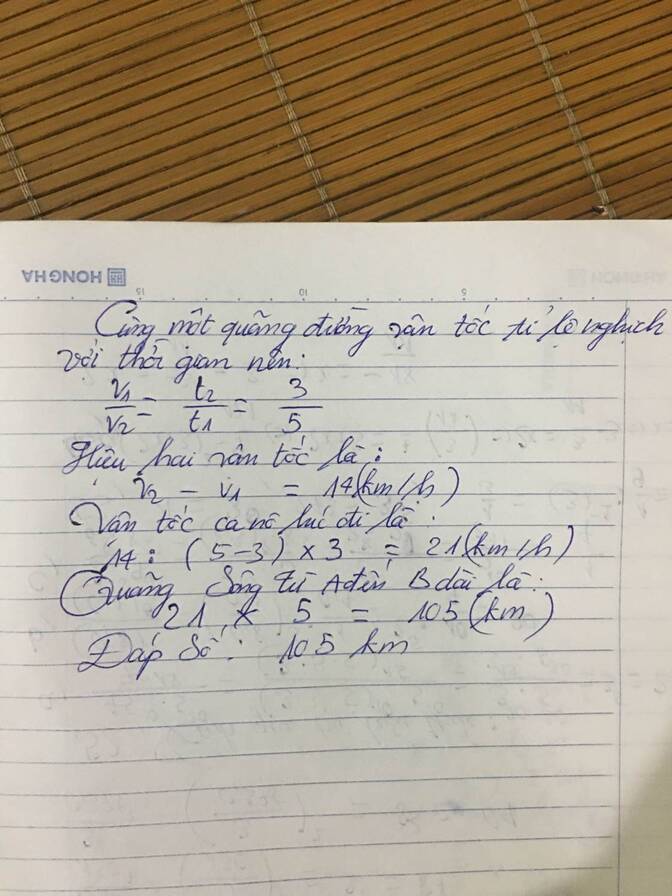 HONG HA
15 10 5
Cùng một quãng đường vận tốc tỉ lệ nghịch
với thời gian nên:
v1/v2 = t2/t1 = 3/5
Hiệu hai vận tốc là:
v2 - v1 = 14(km/h)
Vận tốc ca nô lúc đi là:
14 : (5-3) x 3 = 21(km/h)
Quãng sông từ A đến B dài là:
21 x 5 = 105 (km)
Đáp số: 105 km